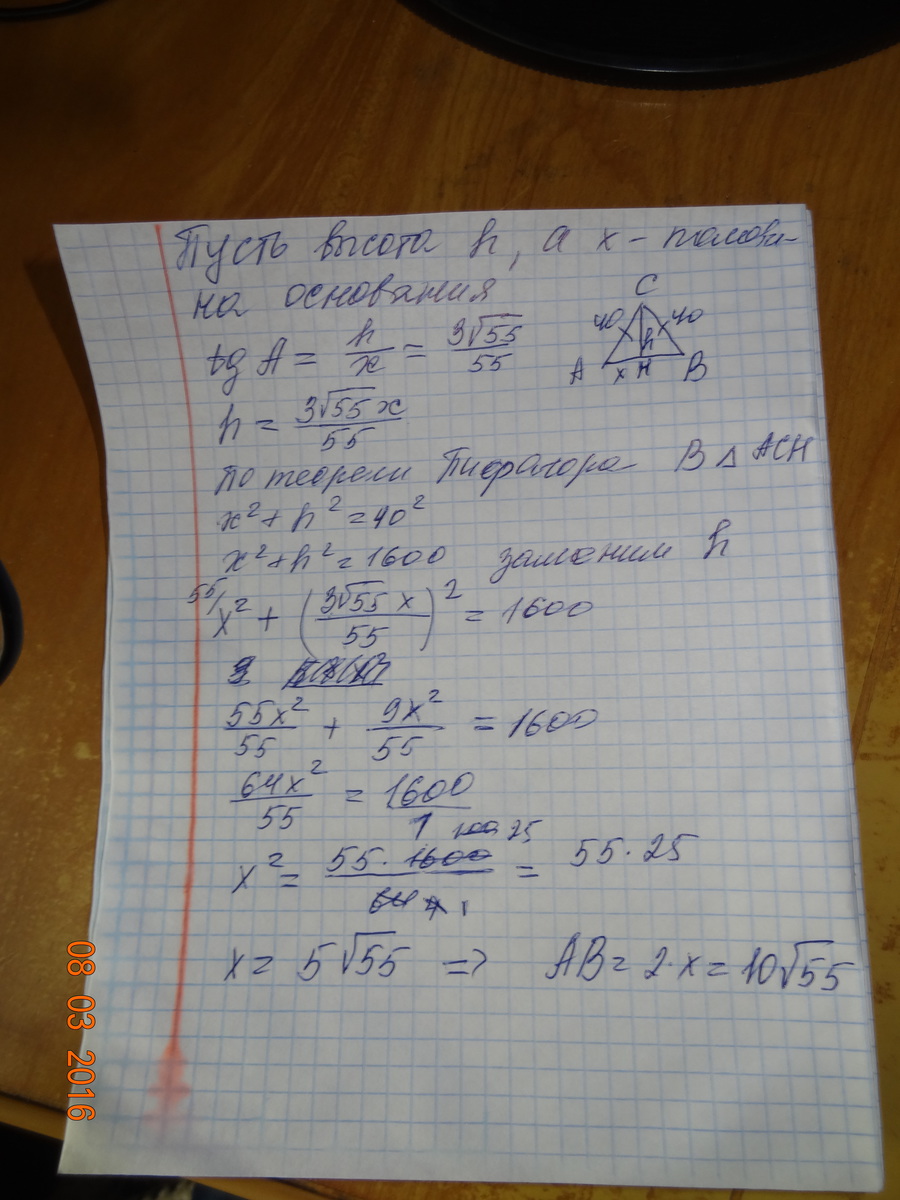 Пусть высота h, а x - полови-
на основания
tg A = h/x = 3√55/55
C
40 40
h
A x H B
h = 3√55 x/55
по теореме Пифагора В △ ACH
x² + h² = 40²
x² + h² = 1600 заменим h
55/ x² + (3√55 x/55)² = 1600
55x²/55 + 9x²/55 = 1600
64x²/55 = 1600/1
x² = 55 · 1600/64 = 55 · 25
100 25
4 1
x = 5√55 => AB = 2·x = 10√55
08 03 2016